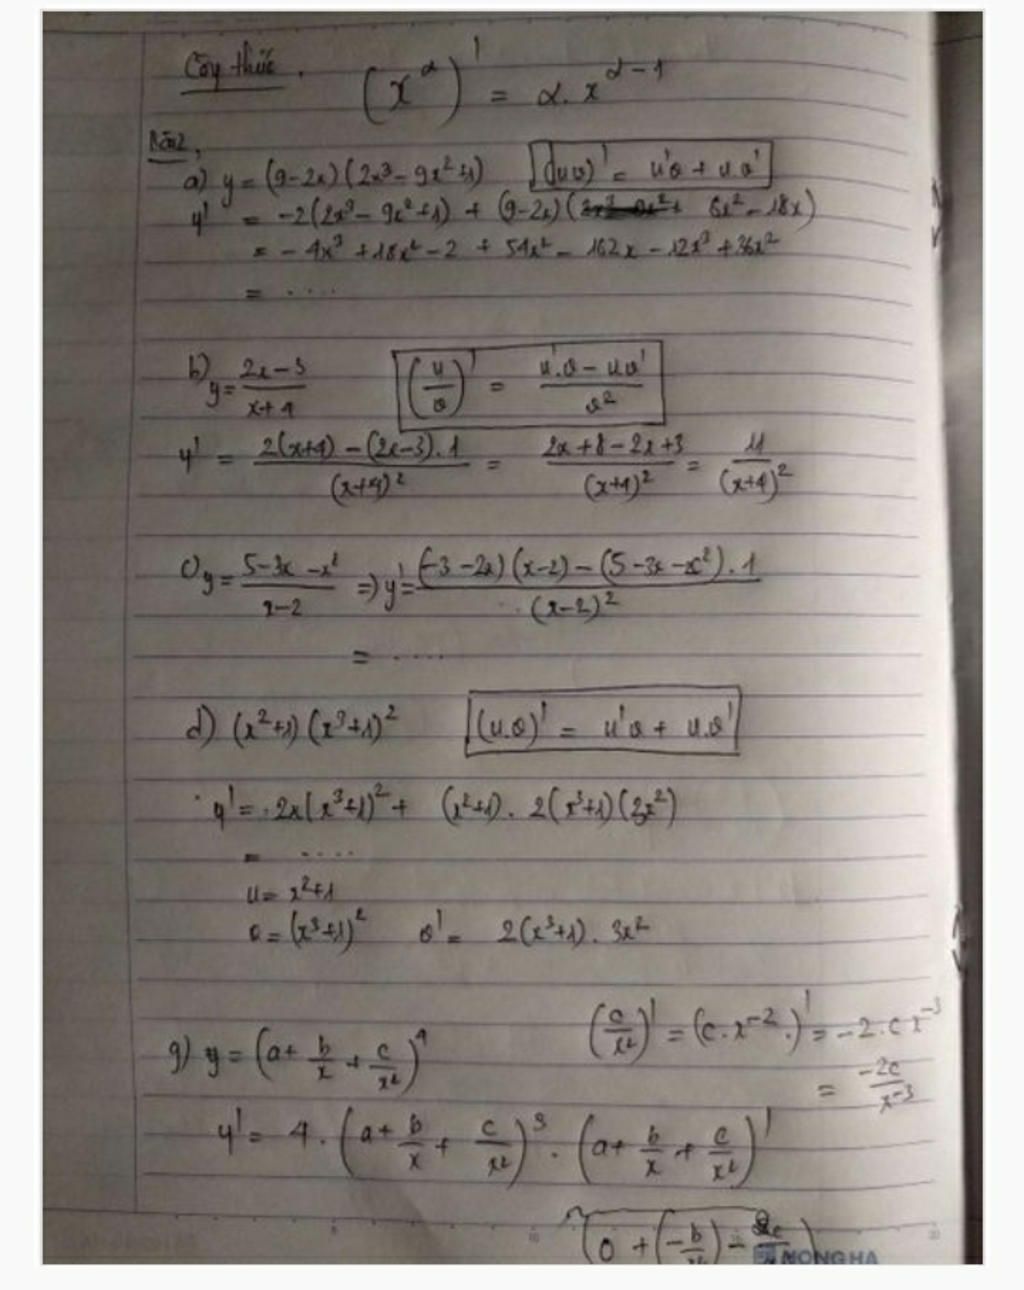 Công thức. (x^α)' = α.x^(α-1)
Bài 2,
a) y = (9-2x)(2x³-9x²+1)   (uv)' = u'v + uv'
y' = -2(2x³-9x²+1) + (9-2x)(6x²-18x)
= -4x³+18x²-2 + 54x² - 162x - 12x³+36x²
= ....
b) y = (2x-3)/(x+4)   (u/v)' = (u'.v - uv')/v²
y' = (2(x+4) - (2x-3).1)/(x+4)² = (2x+8-2x+3)/(x+4)² = 11/(x+4)²
c) y = (5-3x-x²)/(x-2) => y' = ((-3-2x)(x-2) - (5-3x-x²).1)/(x-2)²
= ....
d) (x²+1)(x³+1)²   (u.v)' = u'v + u.v'
y' = 2x(x³+1)² + (x²+1).2(x³+1)(3x²)
= ....
u = x²+1
v = (x³+1)²   v' = 2(x³+1).3x²
g) y = (a + b/x + c/x²)⁴   (c/x²)' = (c.x⁻².)' = -2.cx⁻³
= -2c/x⁻³
y' = 4.(a + b/x + c/x²)³.(a + b/x + c/x²)'
HONG HA